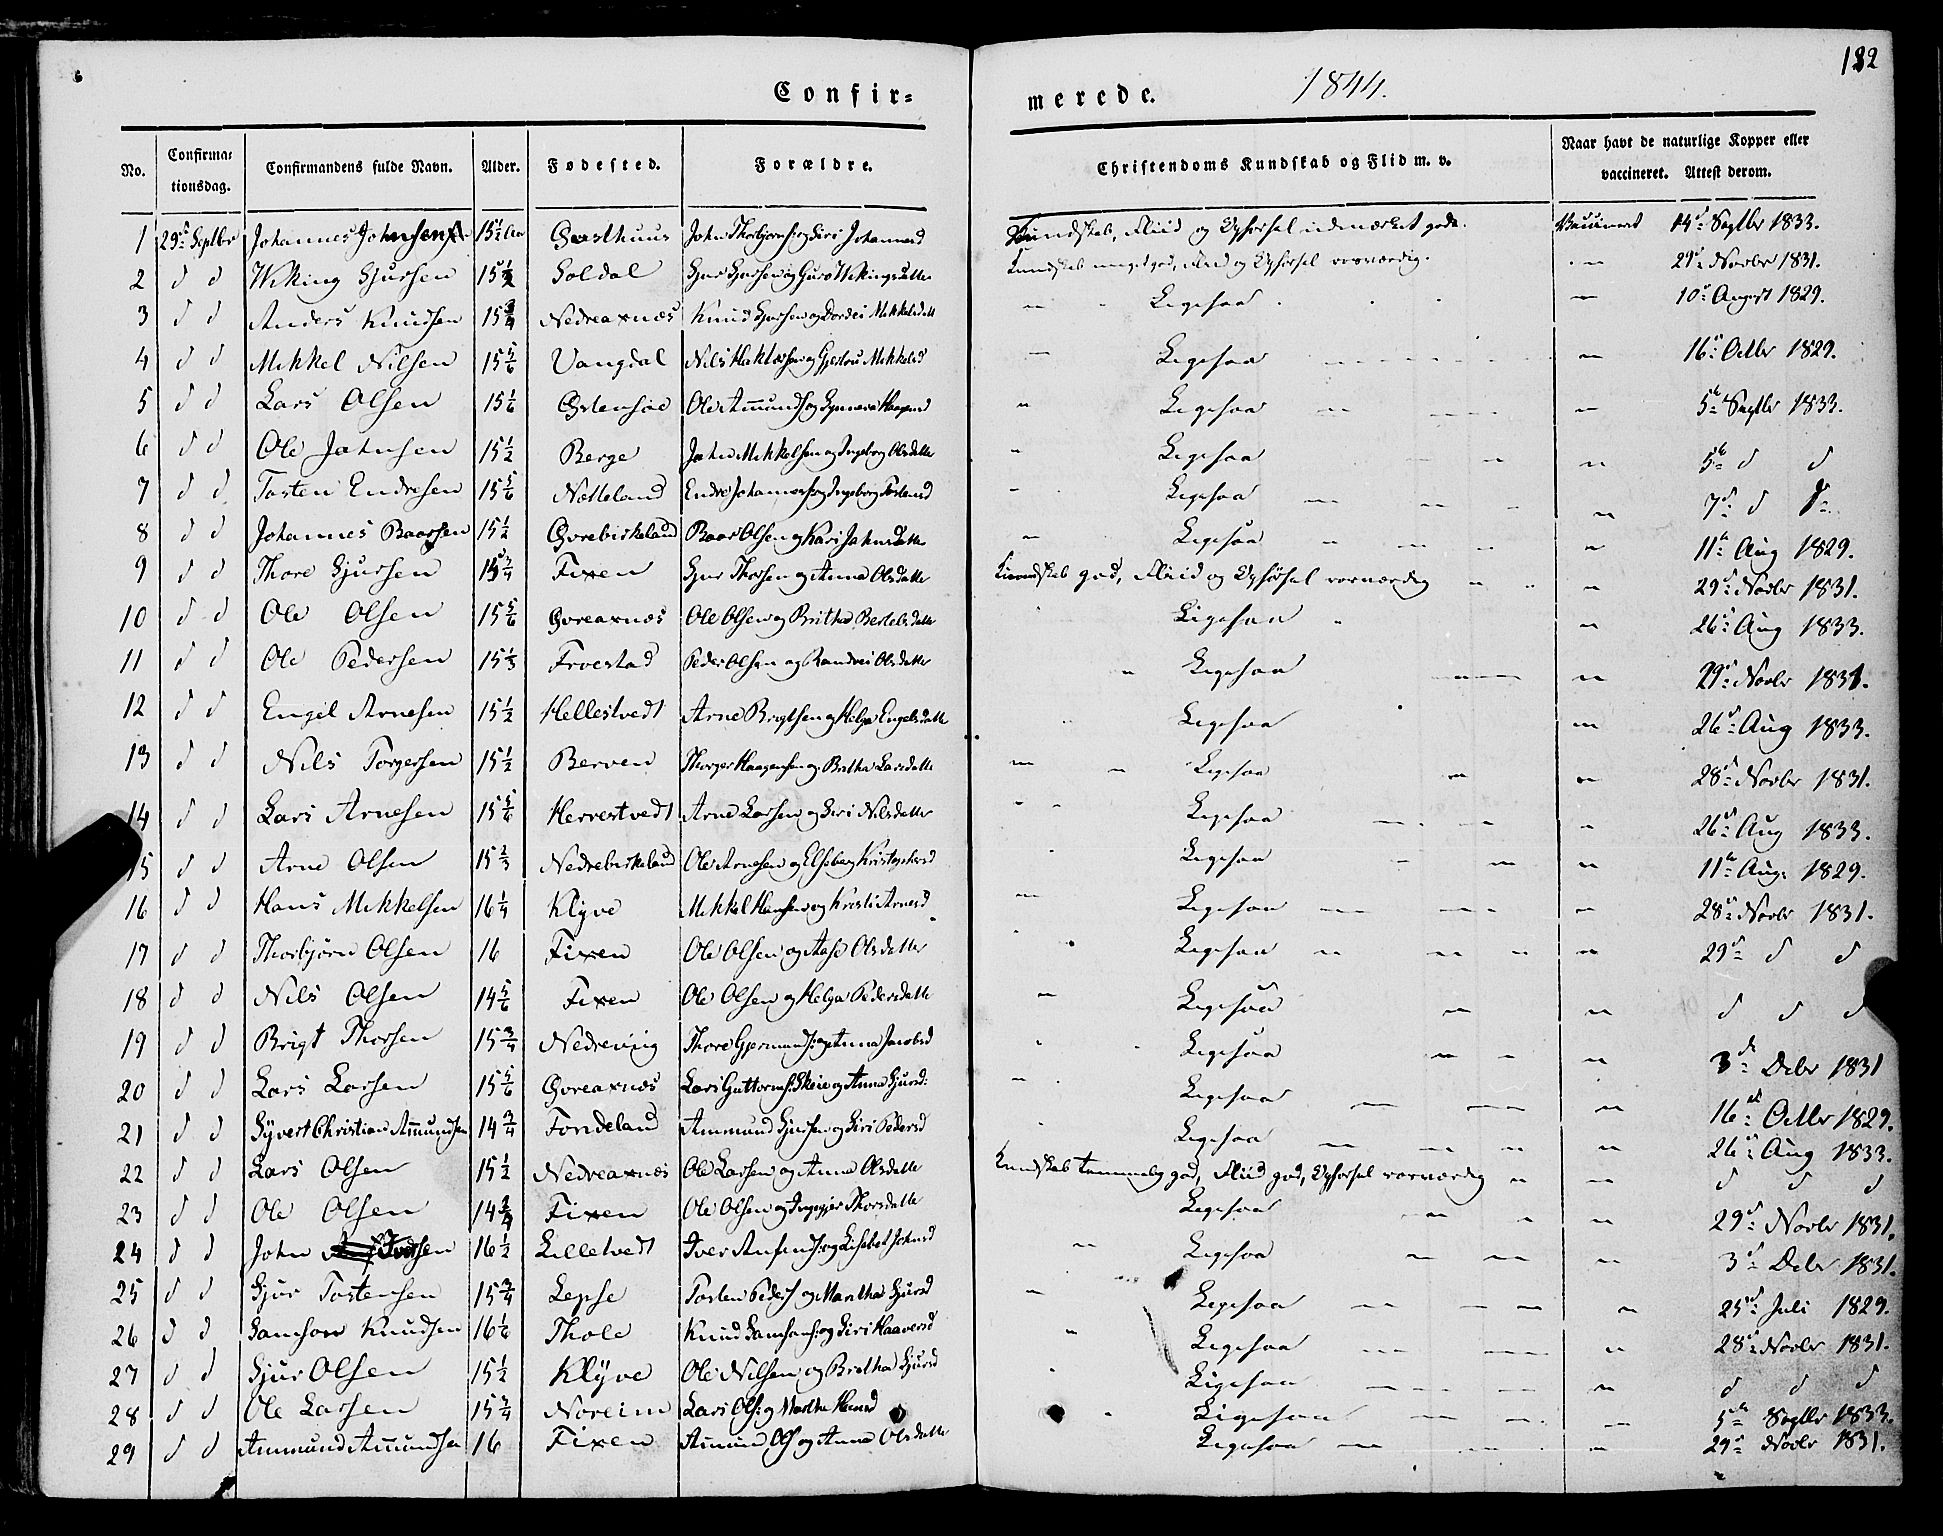 182
Confir=
merede.
1844.
No. Confirma= tionsdag. Confirmandens fulde Navn. Alder. Fødested. Forældre. Christendoms Kundskab og Flid m. v. Naar havt de naturlige Kopper eller vaccineret. Attest derom.
1 29de Septbr Johannes Johnsen 15 1/2 Aar John Thorbjørns: og Siri Johannesd Kundskab, Fliid og Opførsel udmærket gode. Vaccineret 14d Septbr 1833.
2 d d Wiking Sjursen 15 1/2 Soldal Sjur Sjursen og Guro Wikingsdatter Kundskab meget god, Fliid og Opførsel roesværdig. — 29d Novbr 1831.
3 d d Anders Knudsen 15 3/4 Nedreaxnæs Knud Sjursen og Dordei Mikkelsdatt — Ligesaa — 10d August 1829.
4 d d Mikkel Nilsen 15 5/6 Vangdal Nils og Mikkelsd — Ligesaa — 16d Octbr 1829.
5 d d Lars Olsen 15 1/6 Østensøe Ole Amunds og Synneva — Ligesaa — 5te Septbr 1833.
6 d d Ole Johnsen 15 1/2 Berge John Mikkelsen og Ingeborg Olsdatter — Ligesaa — 5te d d
7 d d Tosten Endresen 15 5/6 Netteland Endre Johannes: og Ingeborg Tostensd — Ligesaa — 7d d d
8 d d Johannes Baarsen 15 1/2 Øvrebirkeland Baar Olsen og Kari Johnsdatter — Ligesaa — 11te Aug 1829.
9 d d Thore Sjursen 15 3/4 Fixen Sjur Thorsen og Anna Olsdatter Kundskab god, Fliid og Opførsel rosværdig — 29d Novbr 1831.
10 d d Ole Olsen 15 5/6 Øvreaxnæs Ole Olsen og Britha Bertelsdatter Ligesaa — 26d Aug 1833.
11 d d Ole Pedersen 15 1/3 Froestad Peder Olsen og Randvei Olsdatter — Ligesaa — 29d Novbr 1831.
12 d d Engel Arnesen 15 1/2 Hellestvedt Arne Brigtsen og Helga Engelsdatter Ligesaa — 26d Aug 1833.
13 d d Nils Torgersen 15 1/2 Berven Thorger Haagensen og Britha Larsdatter — Ligesaa — 28d Novbr 1831.
14 d d Lars Arnesen 15 5/6 Herrestvedt Arne Larsen og Siri Nilsdatter — Ligesaa — 26d Aug 1833.
15 d d Arne Olsen 15 2/3 Nedrebirkeland Ole Arnesen og Elseberg Ligesaa — 11te Aug. 1829.
16 d d Hans Mikkelsen 16 1/4 Klyve Mikkel Hansen og Kristi Arnesd — Ligesaa — 28d Novbr 1831.
17 d d Thorbjørn Olsen 16 Fixen Ole Olsen og Aase Olsdatter Ligesaa — 29d d d
18 d d Nils Olsen 14 5/6 Fixen Ole Olsen og Helga Pedersdatter — Ligesaa — d d d
19 d d Brigt Thorsen 15 3/4 Nedreviig Thore Gjermunds: og Anna Jacobsd Ligesaa — 3de Debr 1831
20 d d Lars Larsen 15 5/6 Øvreaxnæs Lars Guttorms: Skeie og Anna Sjursd: — Ligesaa — 16de Octbr 1829.
21 d d Syvert Christian Amundsen 14 3/4 Tondeland Ammund Sjursen og Siri Pedersd Ligesaa — 26d Aug 1833.
22 d d Lars Olsen 15 1/2 Nedreaxnæs Ole Larsen og Anna Olsdatter Kundskab temmelig god, Fliid god, Opførsel rosværdig — d d d
23 d d Ole Olsen 14 3/4 Fixen Ole Olsen og Thorsdatter Ligesaa — 29d Novbr 1831.
24 d d John Iversen 16 1/2 Lilletvedt Iver Anfinds: og Lisebet Johnsd — Ligesaa — 3d Debr 1831.
25 d d Sjur Tostensen 15 3/4 Lepse Tosten Peders og Martha Sjursd — Ligesaa — 25d Juli 1829.
26 d d Samson Knudsen 16 1/6 Thole Knud Samsons: og Siri Haaversd — Ligesaa — 28d Novbr 1831.
27 d d Sjur Olsen 15 1/2 Klyve Ole Nilsen og Britha Sjursd Ligesaa — d d d
28 d d Ole Larsen 15 3/4 Noreim Lars Ols: og Martha Hansd Ligesaa — 5te Septbr 1833.
29 d d Ammund Amundsen 16 Fixen Amun Ols og Anna Olsdatter Ligesaa — 29d Novbr 1831.